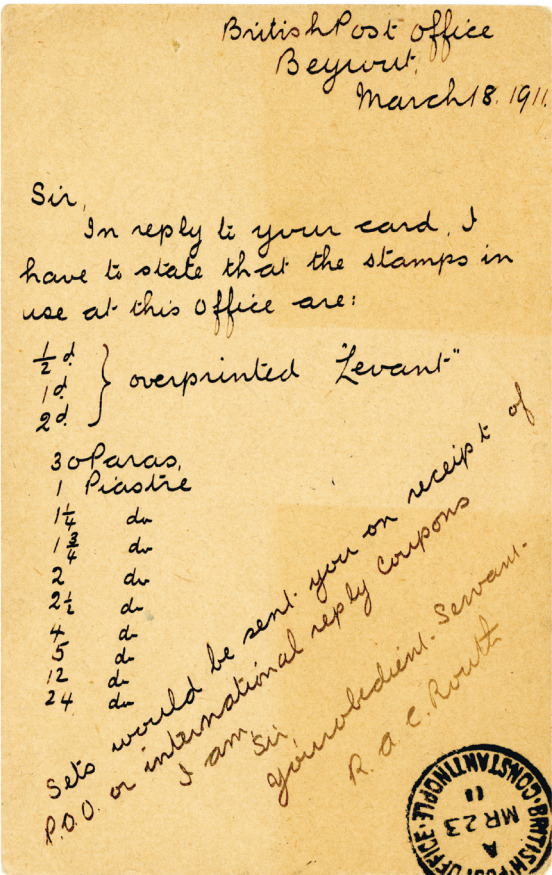 British Post Office
Beyrout,
March 18. 1911.
Sir,
In reply to your card, I
have to state that the stamps in
use at this Office are:
½ d.
1 d.
2 d.
} overprinted "Levant"
30 Paras,
1 Piastre
1¼ do
1¾ do
2 do
2½ do
4 do
5 do
12 do
24 do
Sets would be sent you on receipt of
P.O.O. or international reply coupons
I am,
Sir,
your obedient Servant.
R. A. C. Routh
BRITISH POST OFFICE · CONSTANTINOPLE ·
A
MR 23
11